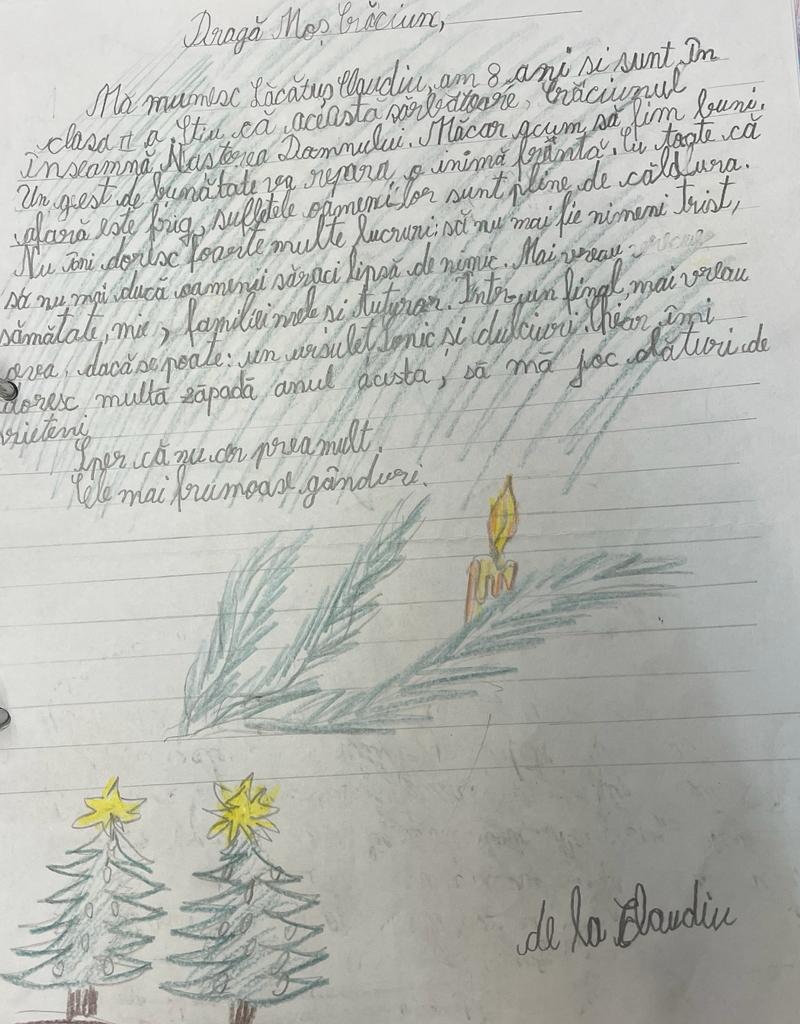 Dragă Moș Crăciun,
Mă numesc Lăcătuș Claudiu, am 8 ani si sunt în
clasa II a Știu că această sărbătoare, Crăciunul
înseamnă Nașterea Domnului. Măcar acum, să fim buni.
Un gest de bunătate va repara o inimă frântă. Cu toate că
afară este frig, sufletele oamenilor sunt pline de căldura.
Nu îmi doresc foarte multe lucruri; să nu mai fie nimeni trist,
să nu mai ducă oamenii săraci lipsă de nimic. Mai vreau
sămătate, mie, familiei mele si tuturor. Într-un final, mai vreau
avea, dacă se poate: un ursulet Sonic si dulciuri. Chiar îmi
doresc multă zăpadă anul acesta, să mă joc alături de
prieteni
Sper că nu cer prea mult.
Cele mai frumoase gânduri.
de la Claudiu